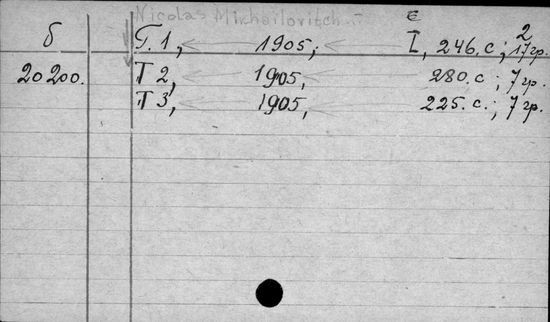 Nicolas Mikhailovitch
б Т. 1, 1905, I, 246. с; 17 гр. 2
20200. Т 2, 1905, 280. с; 7 гр.
Т 3, 1905, 225. с.; 7 гр.